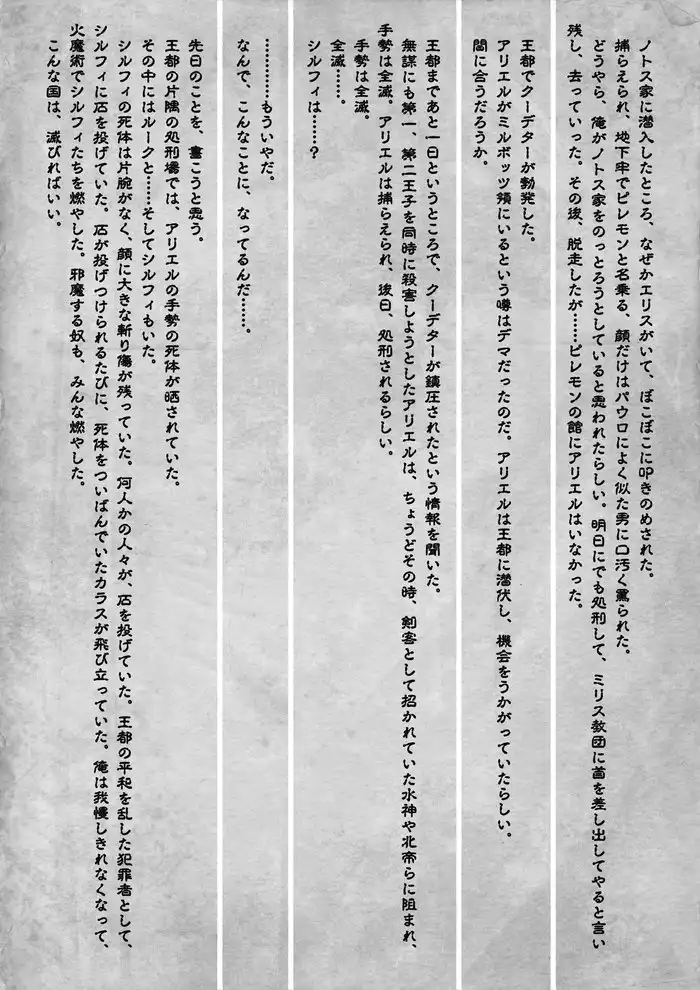 ノトス家に潜入したところ、なぜかエリスがいて、ぼこぼこに叩きのめされた。
捕らえられ、地下牢でピレモンと名乗る、顔だけはパウロによく似た男に口汚く罵られた。
どうやら、俺がノトス家をのっとろうとしていると思われたらしい。明日にでも処刑して、ミリス教団に首を差し出してやると言い
残し、去っていった。その後、脱走したが……ピレモンの館にアリエルはいなかった。
王都でクーデターが勃発した。
アリエルがミルボッツ領にいるという噂はデマだったのだ。アリエルは王都に潜伏し、機会をうかがっていたらしい。
間に合うだろうか。
王都まであと一日というところで、クーデターが鎮圧されたという情報を聞いた。
無謀にも第一、第二王子を同時に殺害しようとしたアリエルは、ちょうどその時、剣客として招かれていた水神や北帝らに阻まれ、
手勢は全滅。アリエルは捕らえられ、後日、処刑されるらしい。
手勢は全滅。
全滅……。
シルフィは……？
…………もういやだ。
なんで、こんなことに、なってるんだ……。
先日のことを、書こうと思う。
王都の片隅の処刑場では、アリエルの手勢の死体が晒されていた。
その中にはルークと……そしてシルフィもいた。
シルフィの死体は片腕がなく、顔に大きな斬り傷が残っていた。何人かの人々が、石を投げていた。王都の平和を乱した犯罪者として、
シルフィに石を投げていた。石が投げつけられるたびに、死体をついばんでいたカラスが飛び立っていた。俺は我慢しきれなくなって、
火魔術でシルフィたちを燃やした。邪魔する奴も、みんな燃やした。
こんな国は、滅びればいい。